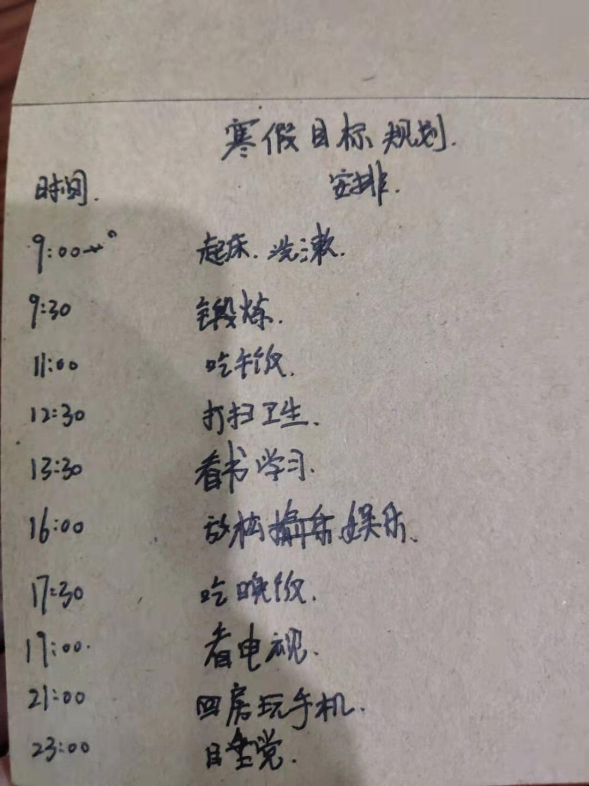 寒假目标规划.
时间. 安排.
9:00 起床.洗漱.
9:30 锻炼.
11:00 吃午饭.
12:30 打扫卫生.
13:30 看书学习.
16:00 放松 娱乐.
17:30 吃晚饭.
19:00. 看电视.
21:00 回房玩手机.
23:00 睡觉.